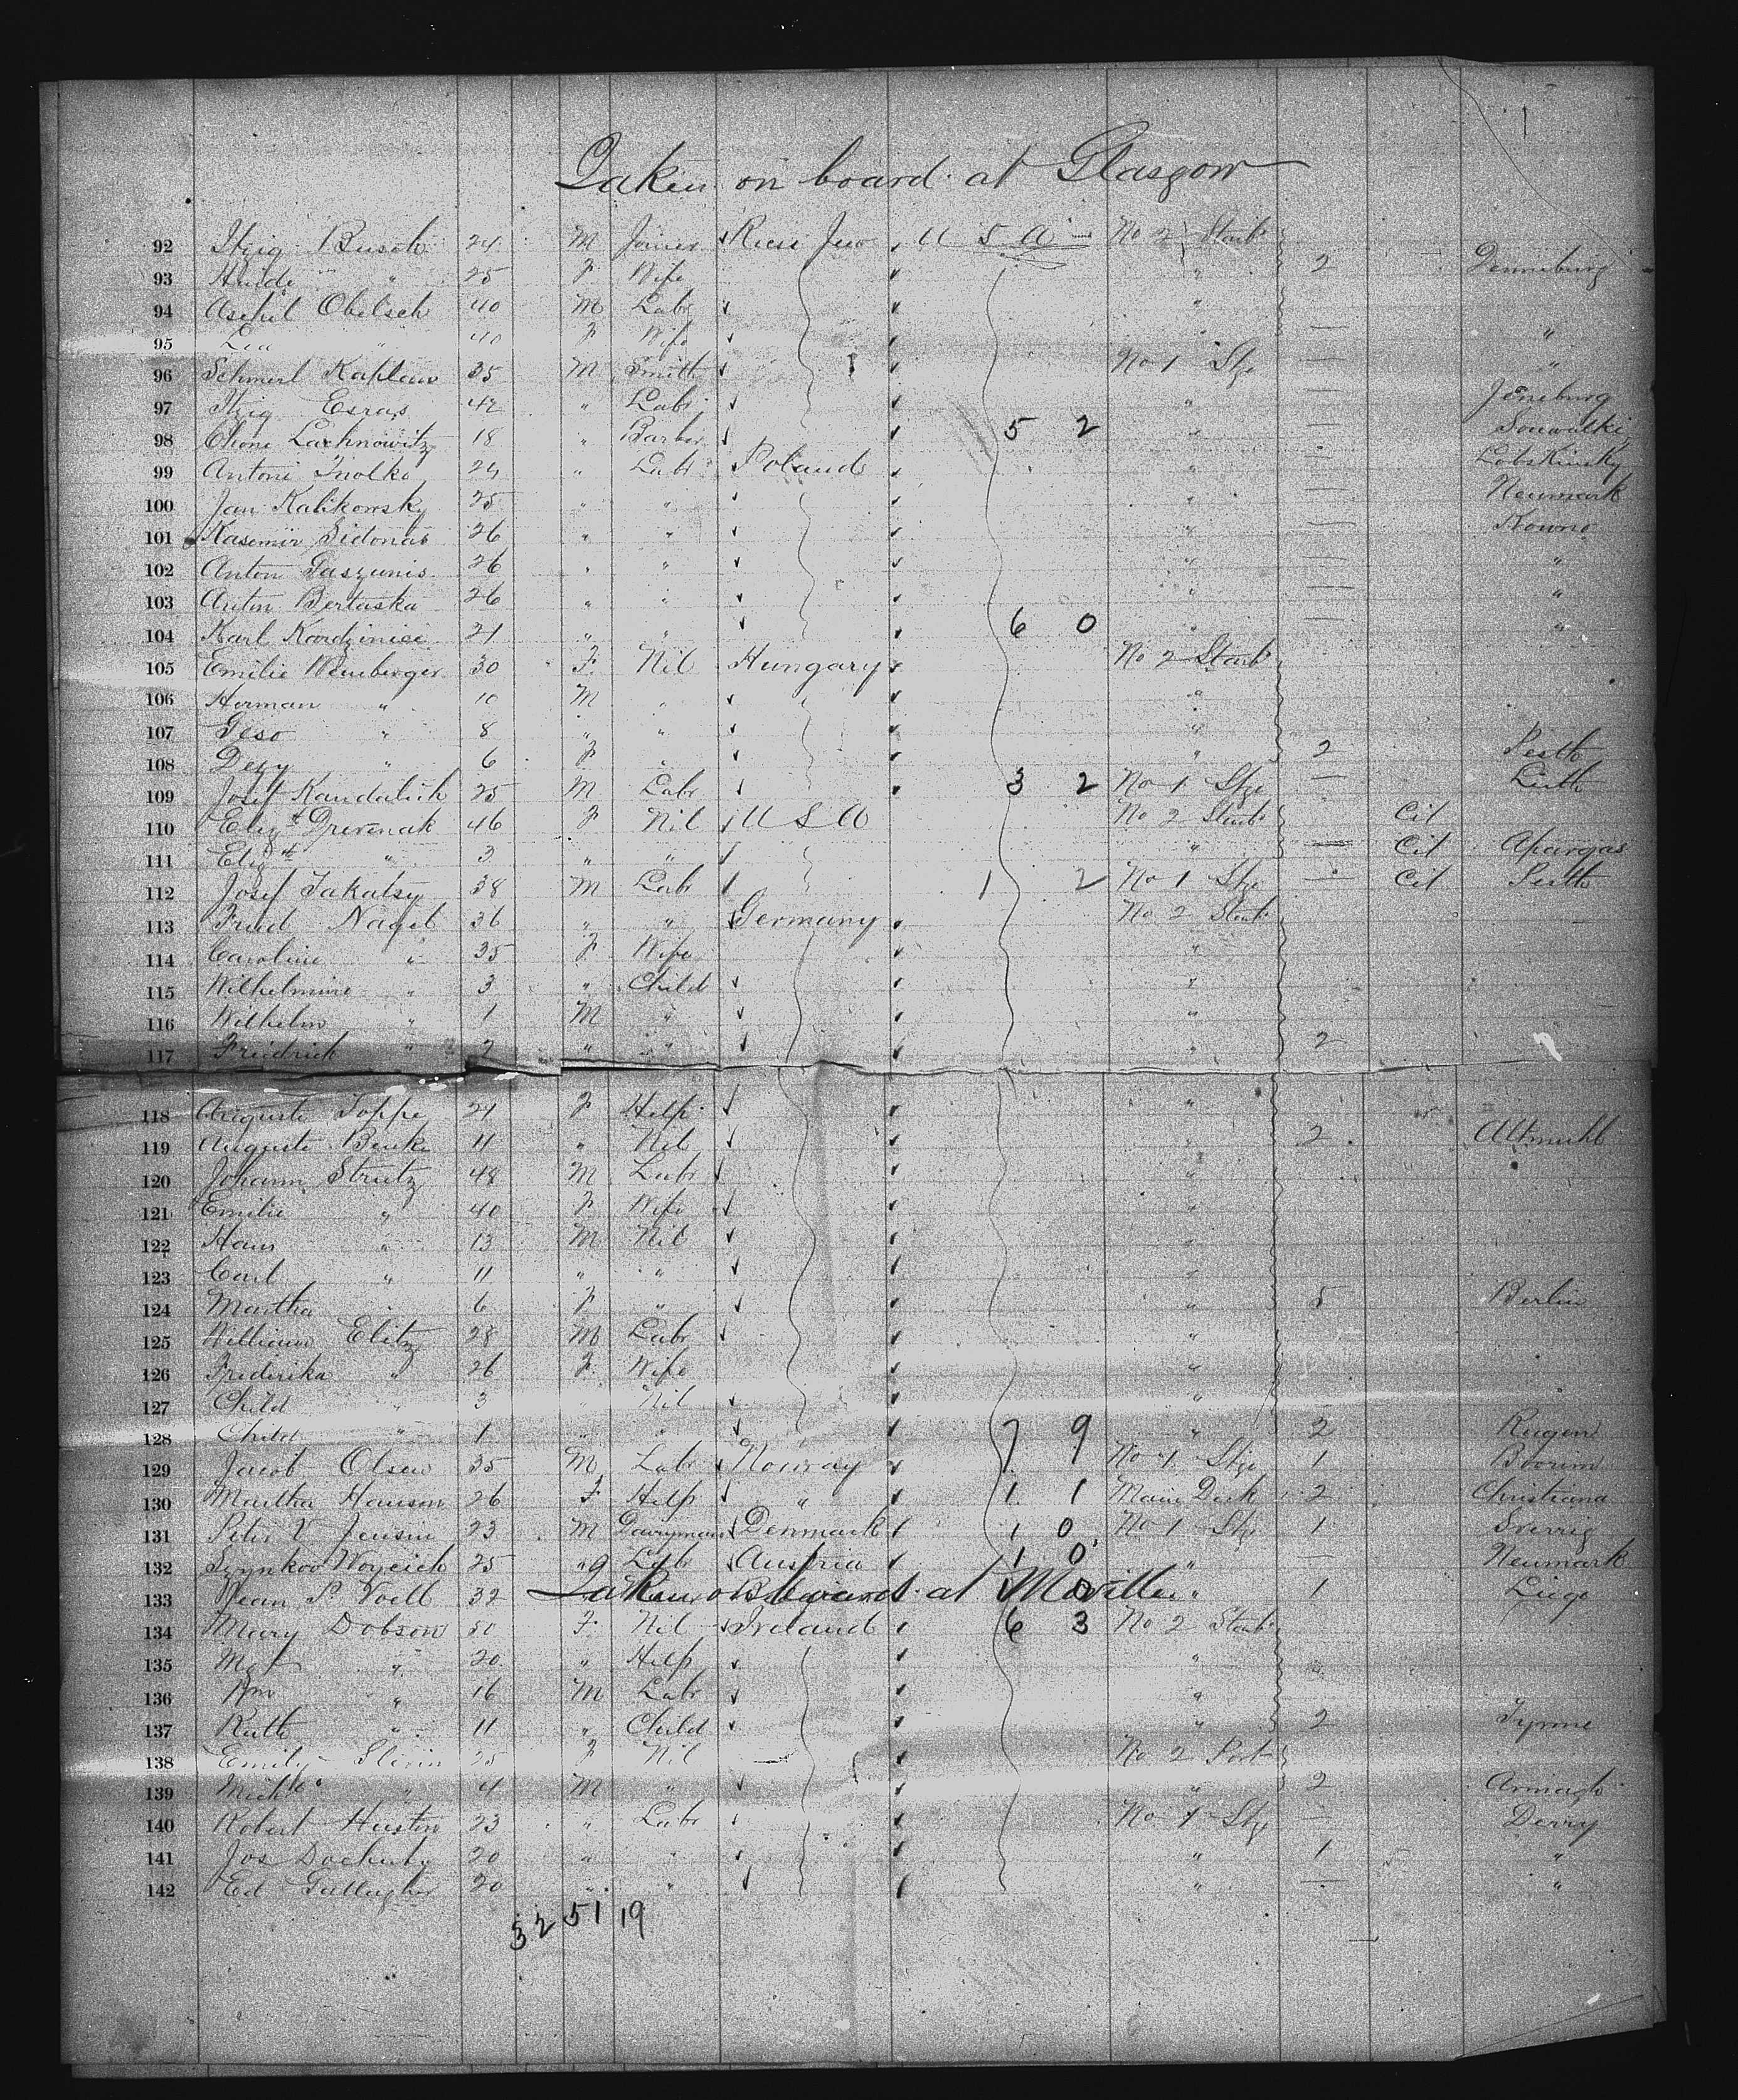 Taken on board at Glasgow
92 Itzig Busch 24 M Joiner Russ Jew U S A No 2 Starb
93 " 25 F Wife " 2 Denneburg
94 Obelsch 40 M Labr "
95 Lea " 40 F Wife " — "
96 Schmerl Kaplan 35 M Smith No 1 Stge — "
97 Itzig Esras 42 " Labr " —
98 Chone Lachnowitz 18 " Barber 5 2 " — Souwalki
99 Antoni 24 " Labr Poland " — Lobskinsky
100 Jan Kalikowsky 25 " " " — Neumark
101 Kasemir Sidonas 26 " " " — Kowno
102 Anton Paszunis 26 " " " — "
103 Anton Bertaska 26 " " " — "
104 Karl 21 " " 6 0 " — "
105 Emilie Weinberger 30 F Nil Hungary No 2 Starb
106 Herman " 10 M " "
107 Geso " 8 " " "
108 Dezy " 6 F " " 2 Pesth
109 Josef Kandalich 25 M Labr 3 2 No 1 Stge —
110 Elizth Drevenak 46 F Nil U S A No 2 Starb Cit
111 Elizth " 3 " " " — Cit Apargas
112 Josef Takatsy 38 M Labr 1 2 No 1 Stge — Cit Pesth
113 Fried Nagel 36 " " Germany No 2 Starb
114 Caroline " 35 F Wife "
115 Wilhelmine " 3 " Child "
116 Wilhelm " 1 M " "
117 Freidrich " " " " 2
118 Auguste Toppe 21 F Help "
119 Auguste Benke 11 " Nil " 2 Altmuhl
120 Johann Strutz 48 M Labr "
121 Emilie " 40 F Wife "
122 Hans " 13 M Nil "
123 Carl " 11 " " "
124 Martha " 6 F " " 5 Berlin
125 William Elitz 28 M Labr "
126 Frederika " 26 F Wife "
127 Child " 3 " Nil "
128 Child " 1 " " 7 9 " 2 Rugen
129 Jacob Olsen 35 M Labr Norway No 1 Stge 1
130 Martha Hanson 26 F Help " 1 1 Main Deck 2 Christiana
131 Peter V Jensen 23 M Dairyman Denmark 1 0 No 1 Stge 1 Sverrig
132 Woyceich 25 " Labr Austria 1 0 " — Neumark
133 Jean P. Voell 32 " 1 Liege
Taken on board at Moville
134 Mary Dobson 50 F Nil Ireland 6 3 No 2 Starb
135 " 20 " Help "
136 Wm " 16 M Labr "
137 Ruth " 11 " Child " 2 Tyrone
138 Emily Slevin 25 F Nil No 2 Port
139 " 4 M " " 2 Armagh
140 Robert Huston 23 " Labr No 1 Stge — Derry
141 Jos Docherty 20 " " " 1 "
142 Ed Gallagher 20 " " " — "
32 51 19